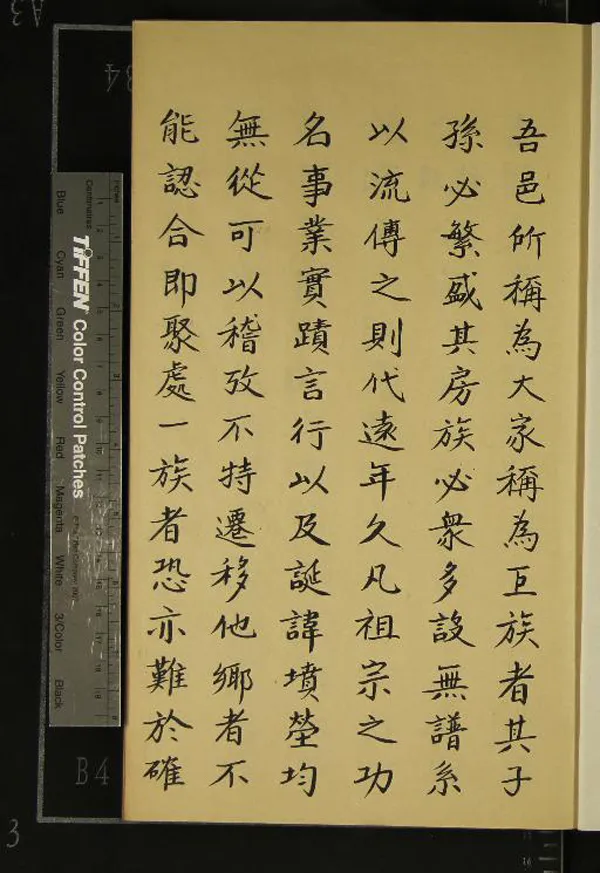 吾邑所稱為大家稱為巨族者其子
孫必繁盛其房族必衆多設無譜系
以流傳之則代遠年久凡祖宗之功
名事業實蹟言行以及誕諱墳塋均
無從可以稽攷不特遷移他鄉者不
能認合即聚處一族者恐亦難於確
Centimetres
TIFFEN Color Control Patches
Blue
Cyan
Green
Yellow
Red
Magenta
White
3/Color
Black
B4
A3
3